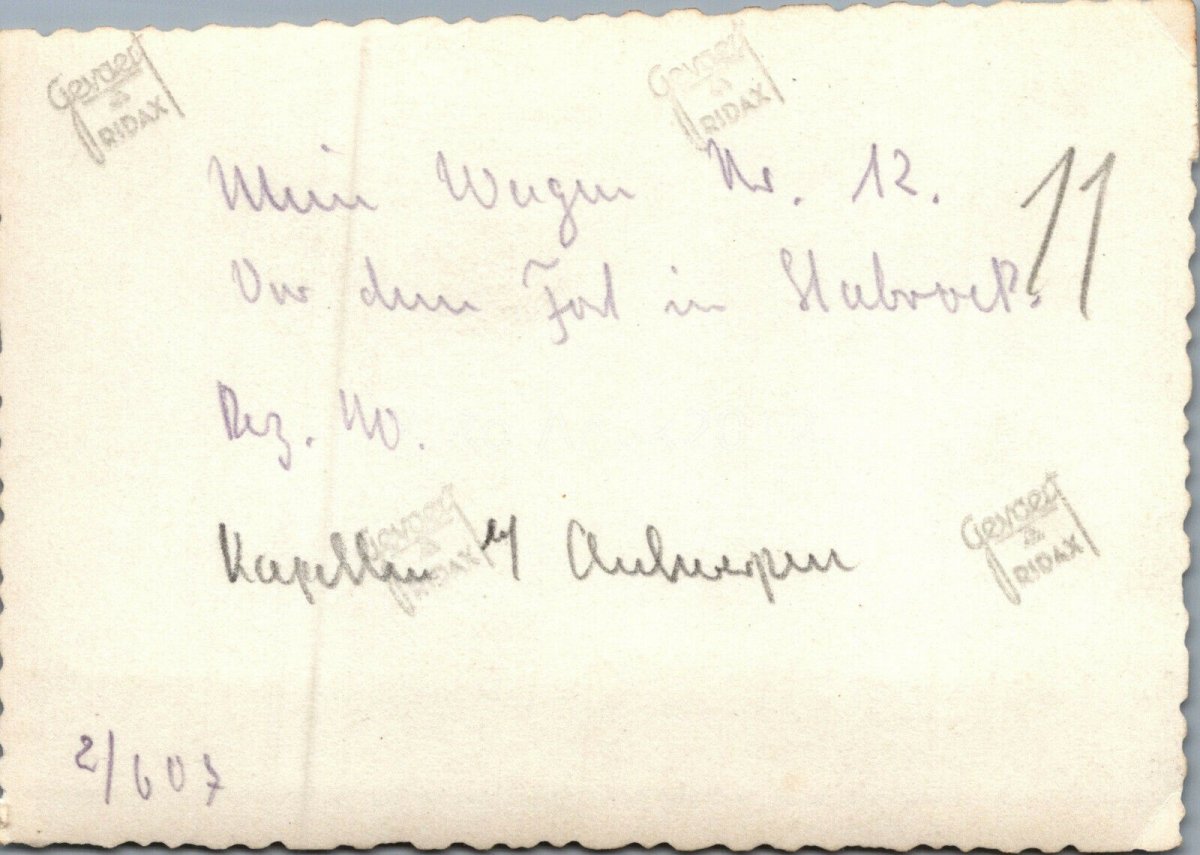 Gevaert RIDAX
Gevaert RIDAX
Mein Wagen Nr. 12.
11
Vor dem Fort in Stabroek.
Dez. 40.
Kapellen b/ Antwerpen
Gevaert RIDAX
Gevaert RIDAX
2/607